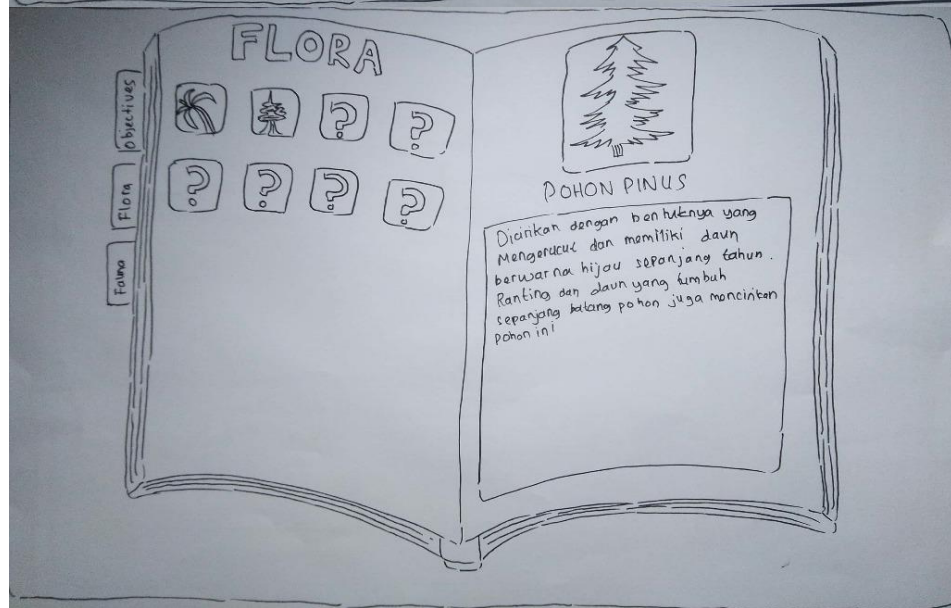 Objectives
Flora
Fauna
FLORA
?
?
?
?
?
?
POHON PINUS
Dicirikan dengan bentuknya yang
Mengerucut dan memiliki daun
berwarna hijau sepanjang tahun.
Ranting dan daun yang tumbuh
sepanjang batang pohon juga mencirikan
pohon ini